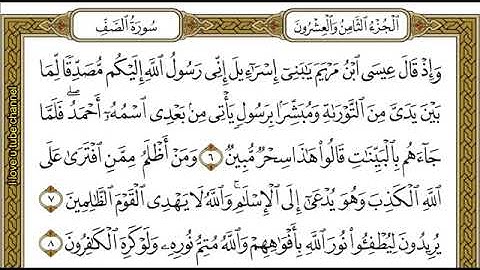 الْجُزْءُ الثَّامِنُ وَالْعِشْرُونَ
سُورَةُ الصَّفِّ
وَإِذْ قَالَ عِيسَى ابْنُ مَرْيَمَ يَٰبَنِىٓ إِسْرَٰٓءِيلَ إِنِّى رَسُولُ اللَّهِ إِلَيْكُم مُّصَدِّقًا لِّمَا
بَيْنَ يَدَىَّ مِنَ التَّوْرَىٰةِ وَمُبَشِّرًۢا بِرَسُولٍ يَأْتِى مِنۢ بَعْدِى اسْمُهُۥٓ أَحْمَدُ ۖ فَلَمَّا
جَآءَهُم بِالْبَيِّنَٰتِ قَالُوا۟ هَٰذَا سِحْرٌ مُّبِينٌ ٦ وَمَنْ أَظْلَمُ مِمَّنِ افْتَرَىٰ عَلَى
اللَّهِ الْكَذِبَ وَهُوَ يُدْعَىٰٓ إِلَى الْإِسْلَٰمِ ۚ وَاللَّهُ لَا يَهْدِى الْقَوْمَ الظَّٰلِمِينَ ٧
يُرِيدُونَ لِيُطْفِـُٔوا۟ نُورَ اللَّهِ بِأَفْوَٰهِهِمْ وَاللَّهُ مُتِمُّ نُورِهِۦ وَلَوْ كَرِهَ الْكَٰفِرُونَ ٨